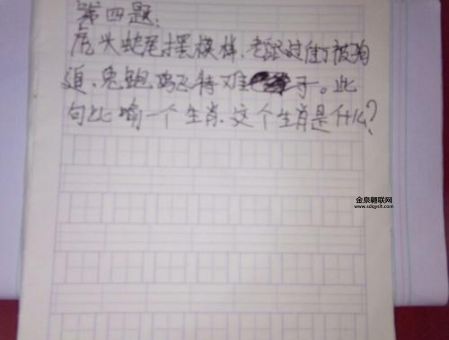 第四题:
虎头蛇尾摆模样,老鼠过街被狗
追,兔跑鸡飞待难于。此
句比喻一个生肖,这个生肖是什么?
金泉翺联网
www.sdqyslt.com